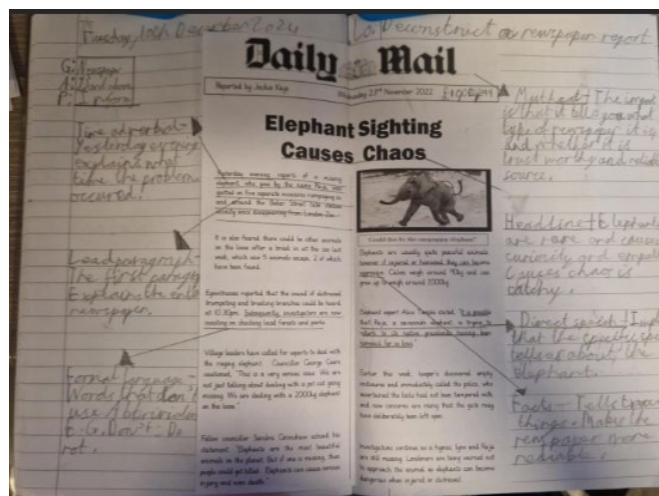 Tuesday, 10th December 2024
L.O. Deconstruct a newspaper report
G:
A:
P: Inform
Daily Mail
Reported by Jackie Kaye
Wednesday 23rd November 2022
Elephant Sighting
Causes Chaos
Time adverbial-
Yesterday evening
explains what
time the problem
occured.
Lead paragraph-
The first
Explains the
newspaper.
Formal language-
Words that don't
use
e.g. Don't - Do
not.
Yesterday evening, reports of a missing
elephant, who goes by the name Raja, was
spotted on five separate occasions rampaging in
and around the Baker Street tube station
since disappearing from London Zoo.
It is also feared there could be other animals
on the loose after a break in at the zoo last
week, which saw 5 animals escape, 2 of which
have been found.
Eyewitnesses reported that the sound of distressed
trumpeting and breaking branches could be heard
at 10:30pm. Subsequently, investigators are now
insisting on checking local forests and parks.
Village leaders have called for experts to deal with
the raging elephant. Councillor George Cears
cautioned, "This is a very serious issue. We are
not just talking about dealing with a pet cat going
missing. We are dealing with a 2000kg elephant
on the loose."
Fellow councillor Sandra Carandison echoed his
statement, "Elephants are the most beautiful
animals on the planet. But if one is missing, then
people could get killed. Elephants can cause serious
injury and even death."
Could this be the rampaging elephant?
Elephants are usually quite peaceful animals
however, if injured or harassed they can become
aggressive. Calves weigh around 90kg and can
grow up to weigh around 2000kg.
Elephant expert Alice Temple stated, "It is possible
that Raja, a savannah elephant, is trying to
return to its native grasslands having been
for so long."
Earlier this week, keepers discovered empty
enclosures and immediately called the police, who
ascertained the locks had not been tampered with,
and now concerns are rising that the gate may
have deliberately been left open.
Investigations continue as a tigress, lynx and Raja
are still missing. Londoners are being warned not
to approach the animal as elephants can become
dangerous when injured or distressed.
Masthead - The
is that it tells you what
type of newspaper it is
and whether it is
trust worthy and reliable
source.
Headline - Elephants
are rare and causes
curiosity and
Causes chaos is
catchy.
Direct speech -
that the
tells us about the
elephant.
Facts - Tells you
things - Makes the
newspaper more
reliable.